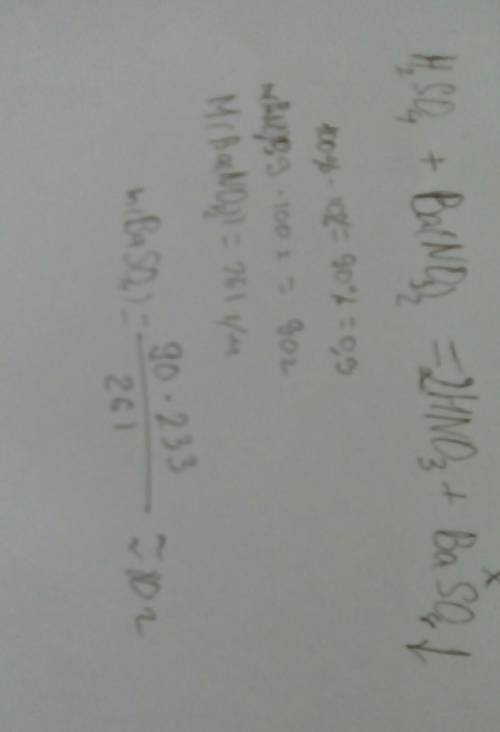 x
H₂SO₄ + Ba(NO₃)₂ = 2HNO₃ + BaSO₄↓
100% - 10% = 90% = 0,9
0,9 · 100 г = 90г
M(Ba(NO₃)₂) = 261 г/м
m(BaSO₄) = 90 · 233 / 261 ≈ 80 г